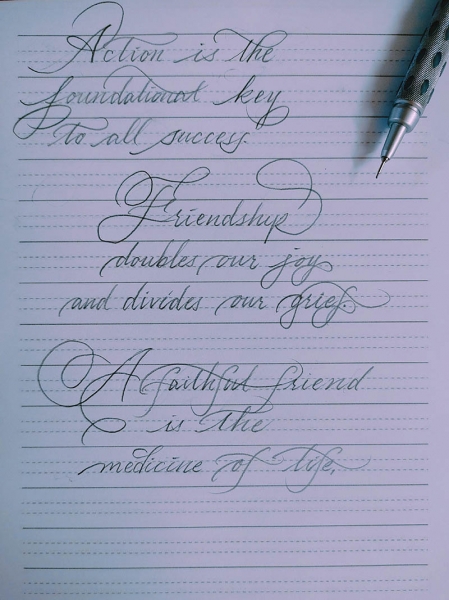 Action is the
foundational key
to all success.
Friendship
doubles our joy
and divides our grief.
A faithful friend
is the
medicine of life.